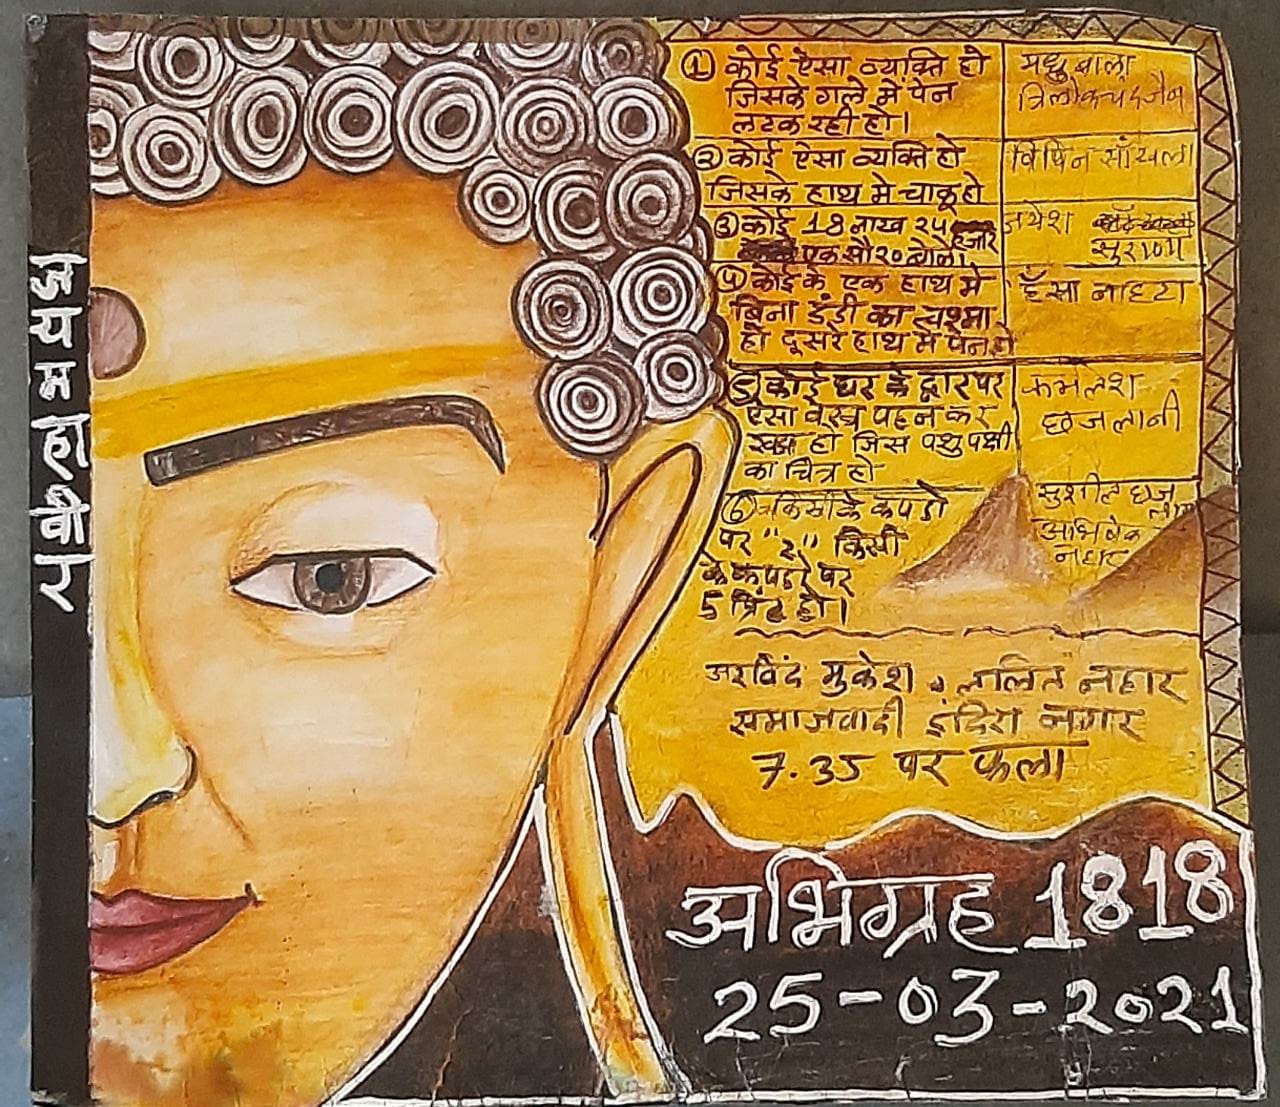 जय महावीर
① कोई ऐसा व्यक्ति हो
जिसके गले मे पेन
लटक रही हो।
मधु बाला
त्रिलोकचंद जैन
② कोई ऐसा व्यक्ति हो
जिसके हाथ मे चाकू हो
विपिन साँखला
③ कोई 18 लाख 25 हजार
एक सौ 20 बोले।
जयेश
सुराणा
④ कोई के एक हाथ मे
बिना डंडी का चश्मा
हो दूसरे हाथ मे पेन हो
हँसा नाहटा
5 कोई घर के द्वार पर
ऐसा वस्त्र पहन कर
खड़ा हो जिस पशु पक्षी
का चित्र हो
कमलेश
छजलानी
⑥ किसी के कपड़ो
पर "2" किसी
के कपडे पर
5 प्रिंट हो।
सुशील छजलानी
अभिषेक
नहार
अरविंद मुकेश, ललित नहार
समाजवादी इंदिरा नगर
7.35 पर फला
अभिग्रह 1818
25-03-2021